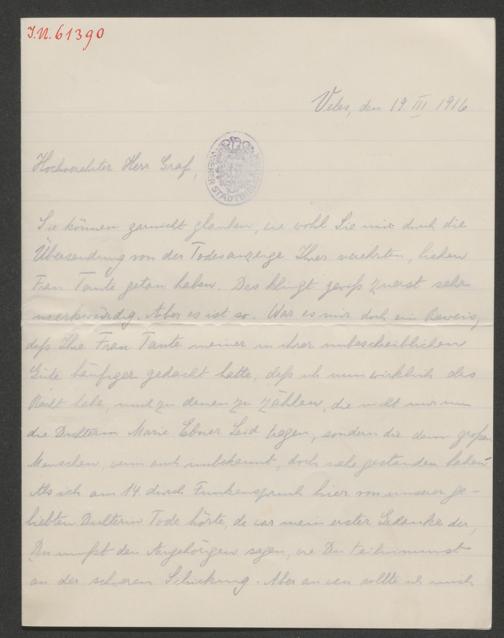 J.N. 61390
Veles, den 19 III 1916
Hochverehrter Herr Graf,
Sie können garnicht glauben, wie wohl Sie mir durch die
Übersendung von der Todesanzeige Ihrer verehrten, lieben
Frau Tante getan haben. Das klingt gewiß zuerst sehr
merkwürdig. Aber es ist so. War es mir doch ein Beweis,
daß Ihre Frau Tante meiner in ihrer unbeschreiblichen
Güte häufiger gedacht hatte, daß ich nun wirklich das
Recht habe, mich zu denen zu zählen, die nicht nur um
die Dichterin Marie Ebner Leid tragen, sondern die dem großen
Menschen, wenn auch unbekannt, doch nahe gestanden haben.
Als ich am 14. durch Funkenspruch hier von unserer ge-
liebten Dichterin Tode hörte, da war mein erster Gedanke der,
Du mußt den Angehörigen sagen, wie Du teilnimmst
an der schweren Schickung. Aber an wen sollte ich mich